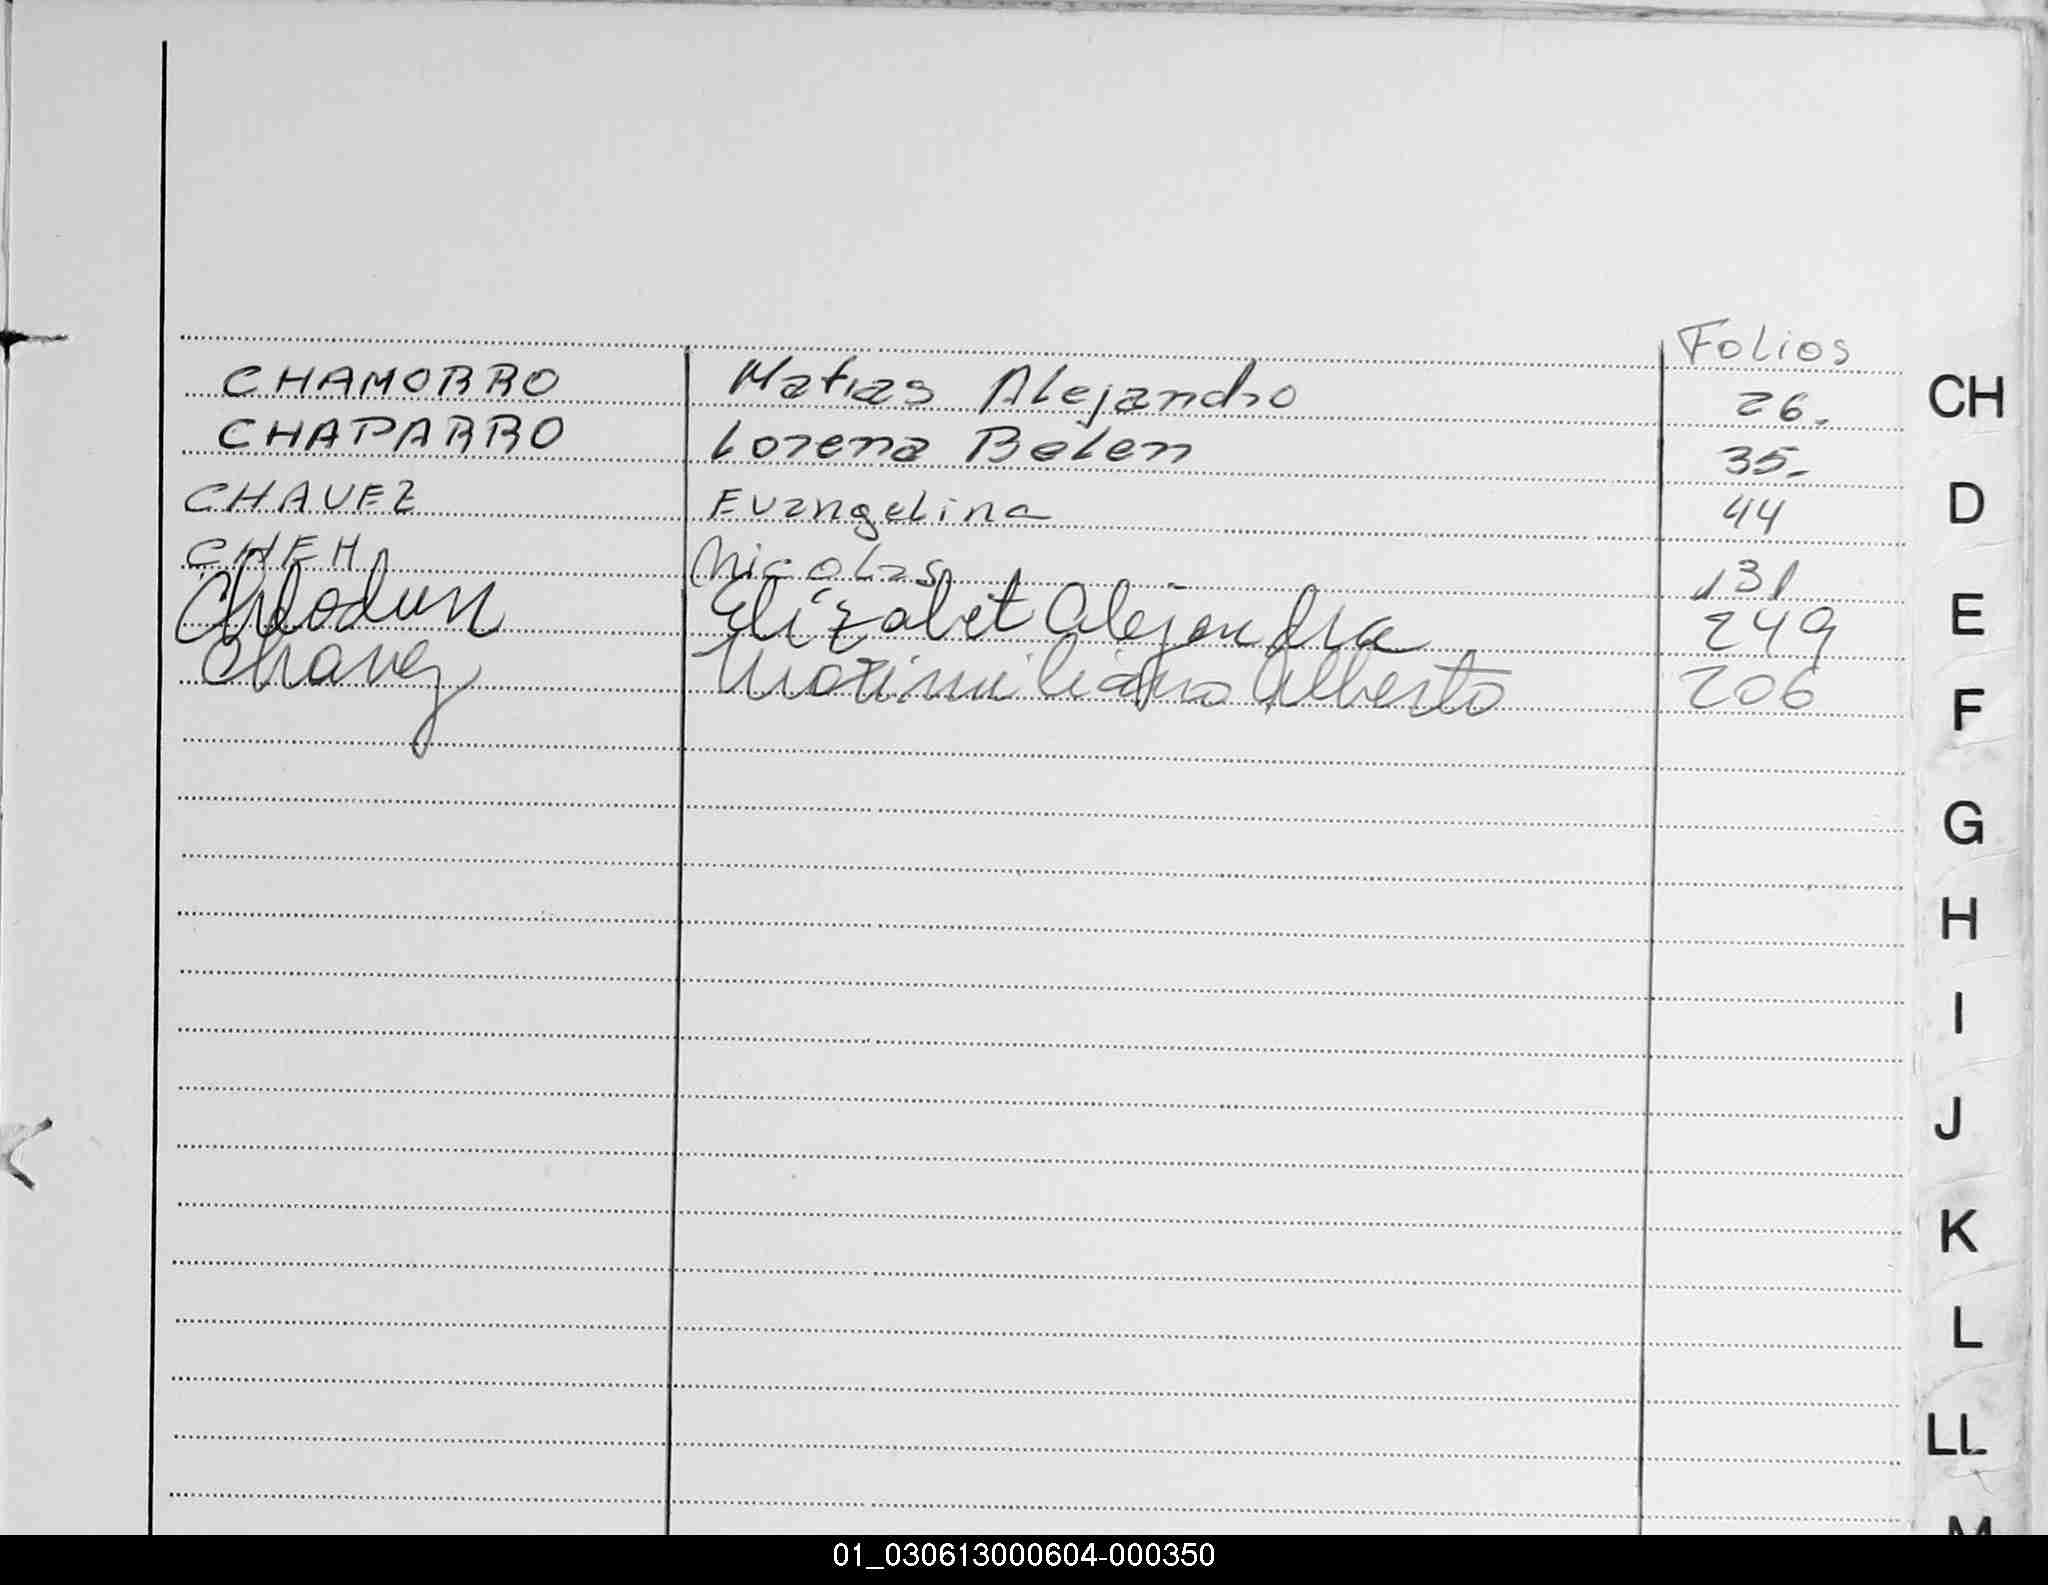 Folios
CHAMORRO Matias Alejandro 26.
CHAPARRO Lorena Belen 35.
CHAVEZ Evangelina 44
CHEH Nicolas 131
Elizabet Alejandra 249
Chavez Maximiliano Alberto 206
CH
D
E
F
G
H
I
J
K
L
LL
M
01_030613000604-000350